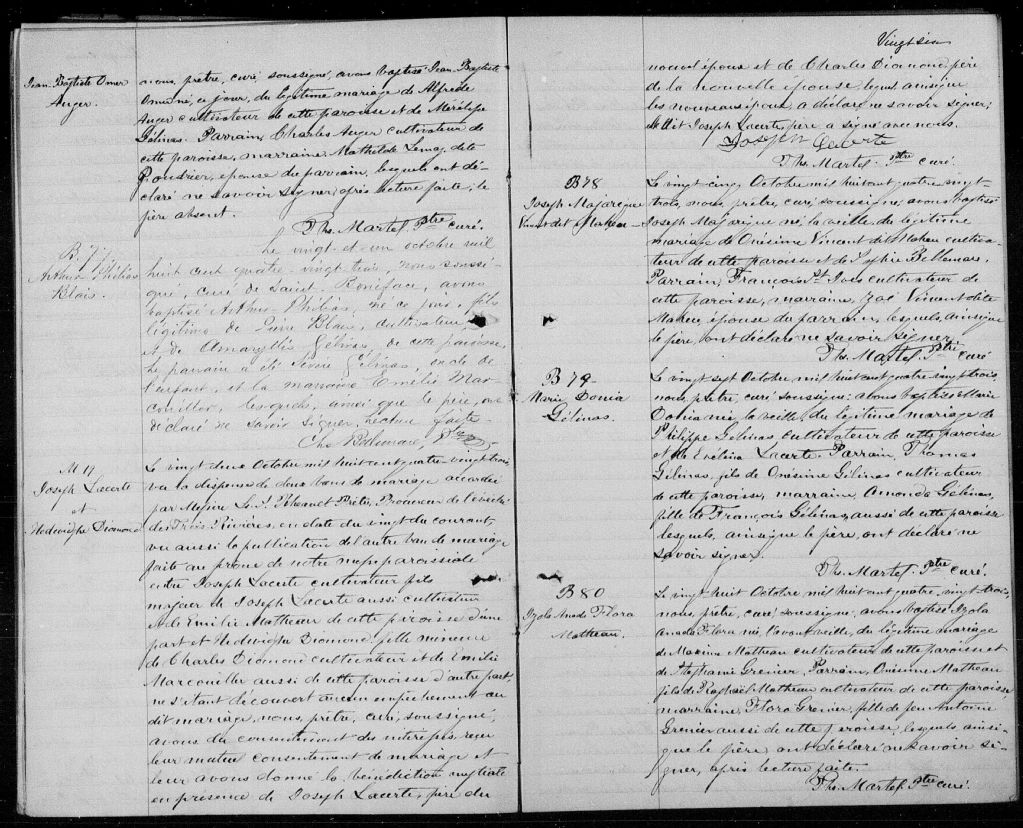 Jean Baptiste Omer
Auger.
nous, prêtre, curé, soussigné, avons baptisé Jean Baptiste
Omer né, ce jour, du légitime mariage de Alfrede
Auger cultivateur de cette paroisse et de Merélise
Gélinas. Parrain, Charles Auger cultivateur de
cette paroisse, marraine, Mathilde Lemay dete
Poudrier, épouse du parrain, lesquels ont dé-
claré ne savoir signer, après lecture faite; le
père absent.
Ths. Martel Ptre curé.
B. 77.
Arthur Philias
Blais.
Le vingt et un octobre mil
huit cent quatre-vingt-trois, nous soussi-
gné, curé de Saint Boniface, avons
baptisé Arthur Philias, né ce jour, fils
légitime de Blais, cultivateur,
et de Amaryllis Gélinas, de cette paroisse,
Le parrain a été Gélinas, oncle de
l'enfant, et la marraine Emélie Mar-
couiller, lesquels, ainsi que le père, ont
déclaré ne savoir signer. Lecture faite.
Chs Bellemare Ptre
M 17
Joseph Lacerte
et
Hedwidge Diamond
Le vingt deux Octobre mil huit cent quatre-vingt trois,
vu la dispense de deux bans de mariage accordée
par Messire Ls. S. Rheault Prêtre, Procureur de l'évêché
des Trois Rivières, en date du vingt du courant,
vu aussi la publication de l'autre ban de mariage
faite au prône de notre messe paroissiale
entre Joseph Lacerte cultivateur fils
majeur de Joseph Lacerte aussi cultivateur
et de Emilie Matheau de cette paroisse d'une
part et Hedwidge Diamond fille mineure
de Charles Diamond cultivateur et de Emilie
Marcouiller aussi de cette paroisse d'autre part,
ne s'étant découvert aucun empêchement au
dit mariage, nous, prêtre, curé, soussigné,
avons du consentement des
leur mutuel consentement de mariage et
leur avons donné la bénédiction nuptiale
en présence de Joseph Lacerte, père du
Vingt six
nouvel époux et de Charles Diamond, père
de la nouvelle épouse lequel ainsi que
les nouveaux époux, a déclaré ne savoir signer;
le dit Joseph Lacerte, père a signé avec nous.
Joseph Lacerte
Ths. Martel. Ptre curé.
B 78
Joseph Majorique
Vincent dit Maheu
Le vingt cinq Octobre mil huit cent quatre vingt-
trois, nous, prêtre, curé, soussigné, avons baptisé
Joseph Majorique né la veille, du légitime
mariage de Onésime Vincent dit Maheu cultiva-
teur de cette paroisse et de Sophie Bellemare.
Parrain, François St. Ives cultivateur de
cette paroisse, marraine, Zoé Vincent dite
Maheu, épouse du parrain, lesquels, ainsi que
le père, ont déclaré ne savoir signer.
Ths. Martel Ptre curé
B 79
Marie Donia
Gélinas.
Le vingt sept Octobre mil huit cent quatre vingt trois,
nous, prêtre, curé, soussigné, avons baptisé Marie
Donia née, la veille, du légitime mariage de
Philippe Gélinas cultivateur de cette paroisse
et de Evelina Lacerte. Parrain, Thomas
Gélinas, fils de Onésime Gélinas cultivateur
de cette paroisse, marraine, Amanda Gélinas,
fille de François Gélinas, aussi de cette paroisse
lesquels, ainsi que le père, ont déclaré ne
savoir signer.
Ths. Martel. Ptre curé.
B 80
Izola Anada Flora
Matheau.
Le vingt huit Octobre mil huit cent quatre vingt trois,
nous, prêtre, curé, soussigné, avons baptisé Izola
Anada Flora née, l'avant veille, du légitime mariage
de Maxime Matheau cultivateur de cette paroisse et
de Stéphanie Grenier. Parrain, Onésime Matheau
fils de Raphaël Matheau cultivateur de cette paroisse,
marraine, Flora Grenier, fille de feu Antoine
Grenier aussi de cette paroisse, lesquels ainsi-
que le père, ont déclaré ne savoir si-
gner, après lecture faite.
Ths. Martel. Ptre curé.